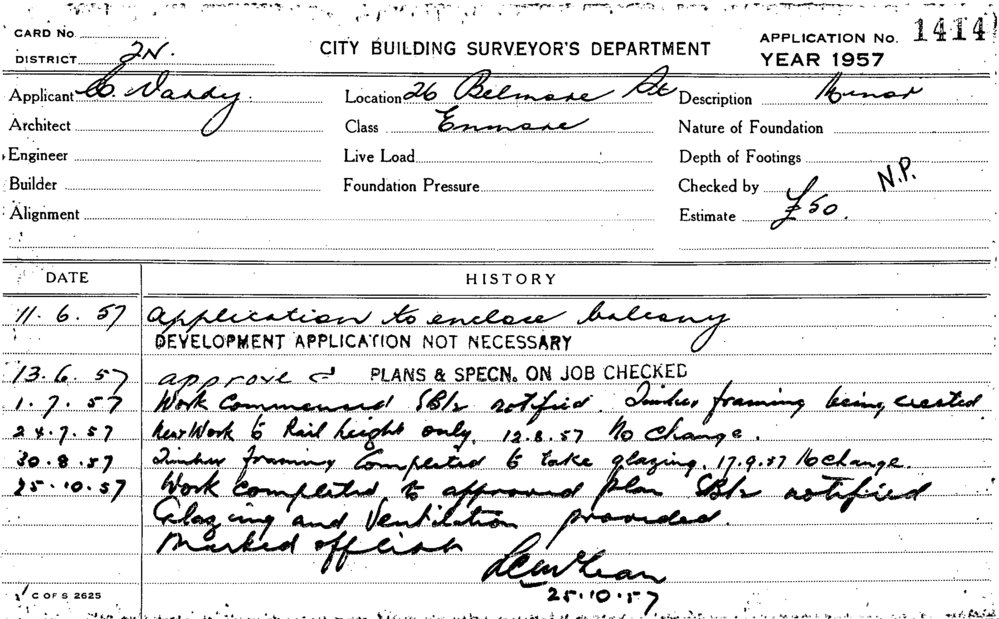 CARD No.
CITY BUILDING SURVEYOR'S DEPARTMENT
APPLICATION No. 1414
DISTRICT 2N.
YEAR 1957
Applicant C. Vardy. Location 26 Belmore St Description Minor
Architect Class Enmore Nature of Foundation
Engineer Live Load Depth of Footings
Builder Foundation Pressure Checked by N.P.
Alignment Estimate £50.
DATE HISTORY
11. 6. 57 Application to enclose balcony
DEVELOPMENT APPLICATION NOT NECESSARY
13. 6. 57 approved PLANS & SPECN. ON JOB CHECKED
1. 7. 57 Work Commenced notified. Timber framing being erected
24. 7. 57 New Work to Rail height only. 12.8.57 No Change.
30. 8. 57 Timber framing Completed to take glazing. 17.9.57 No Change.
25. 10. 57 Work completed to approved plan notified
Glazing and Ventilation provided.
Marked off list
25.10.57
C OF S 2625